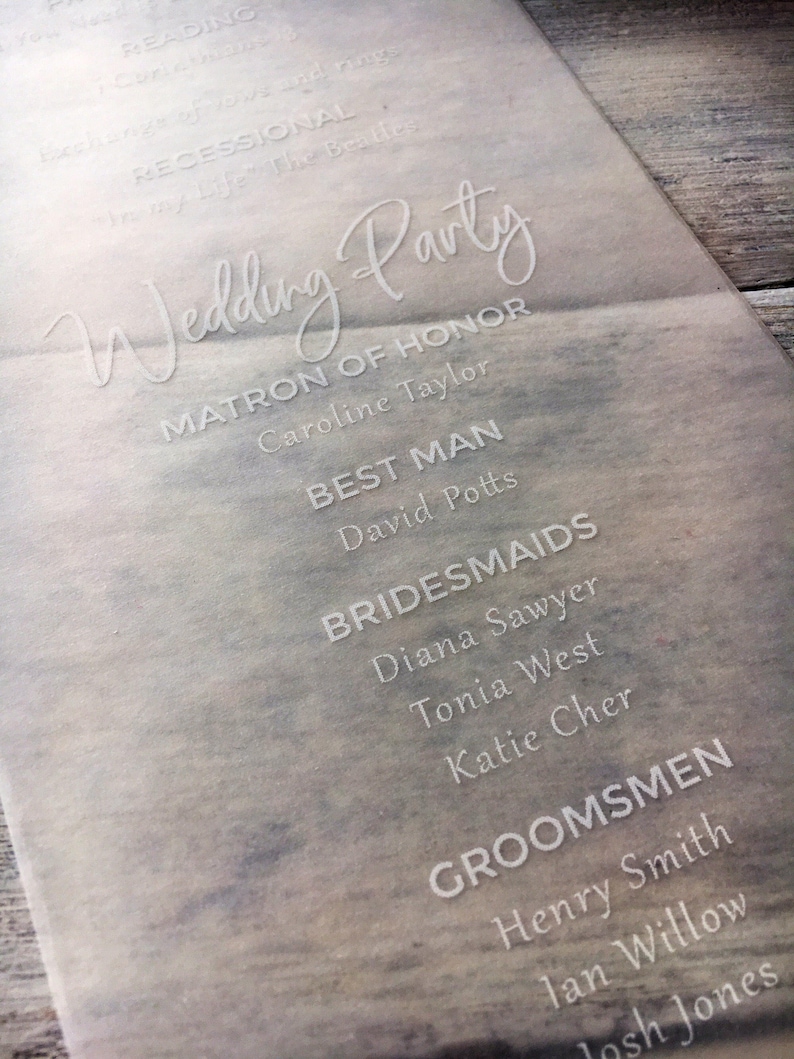 You Need
READING
1 Corinthians 13
Exchange of vows and rings
RECESSIONAL
"In my Life" The Beatles
Wedding Party
MATRON OF HONOR
Caroline Taylor
BEST MAN
David Potts
BRIDESMAIDS
Diana Sawyer
Tonia West
Katie Cher
GROOMSMEN
Henry Smith
Ian Willow
Josh Jones